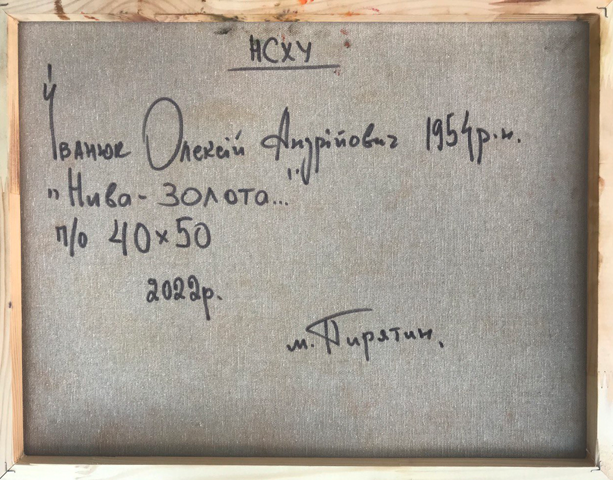 НСХУ
Іванюк Олексій Андрійович 1954р.н.
"Нива - золото..."
п/о 40×50
2022р.
м. Пирятин.